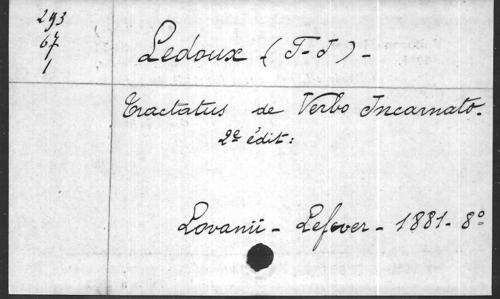 293
67
1
Ledoux (T-J)-
Tractatus de Verbo Incarnato-
2e édit:
Lovanii- Lefever- 1881- 8o